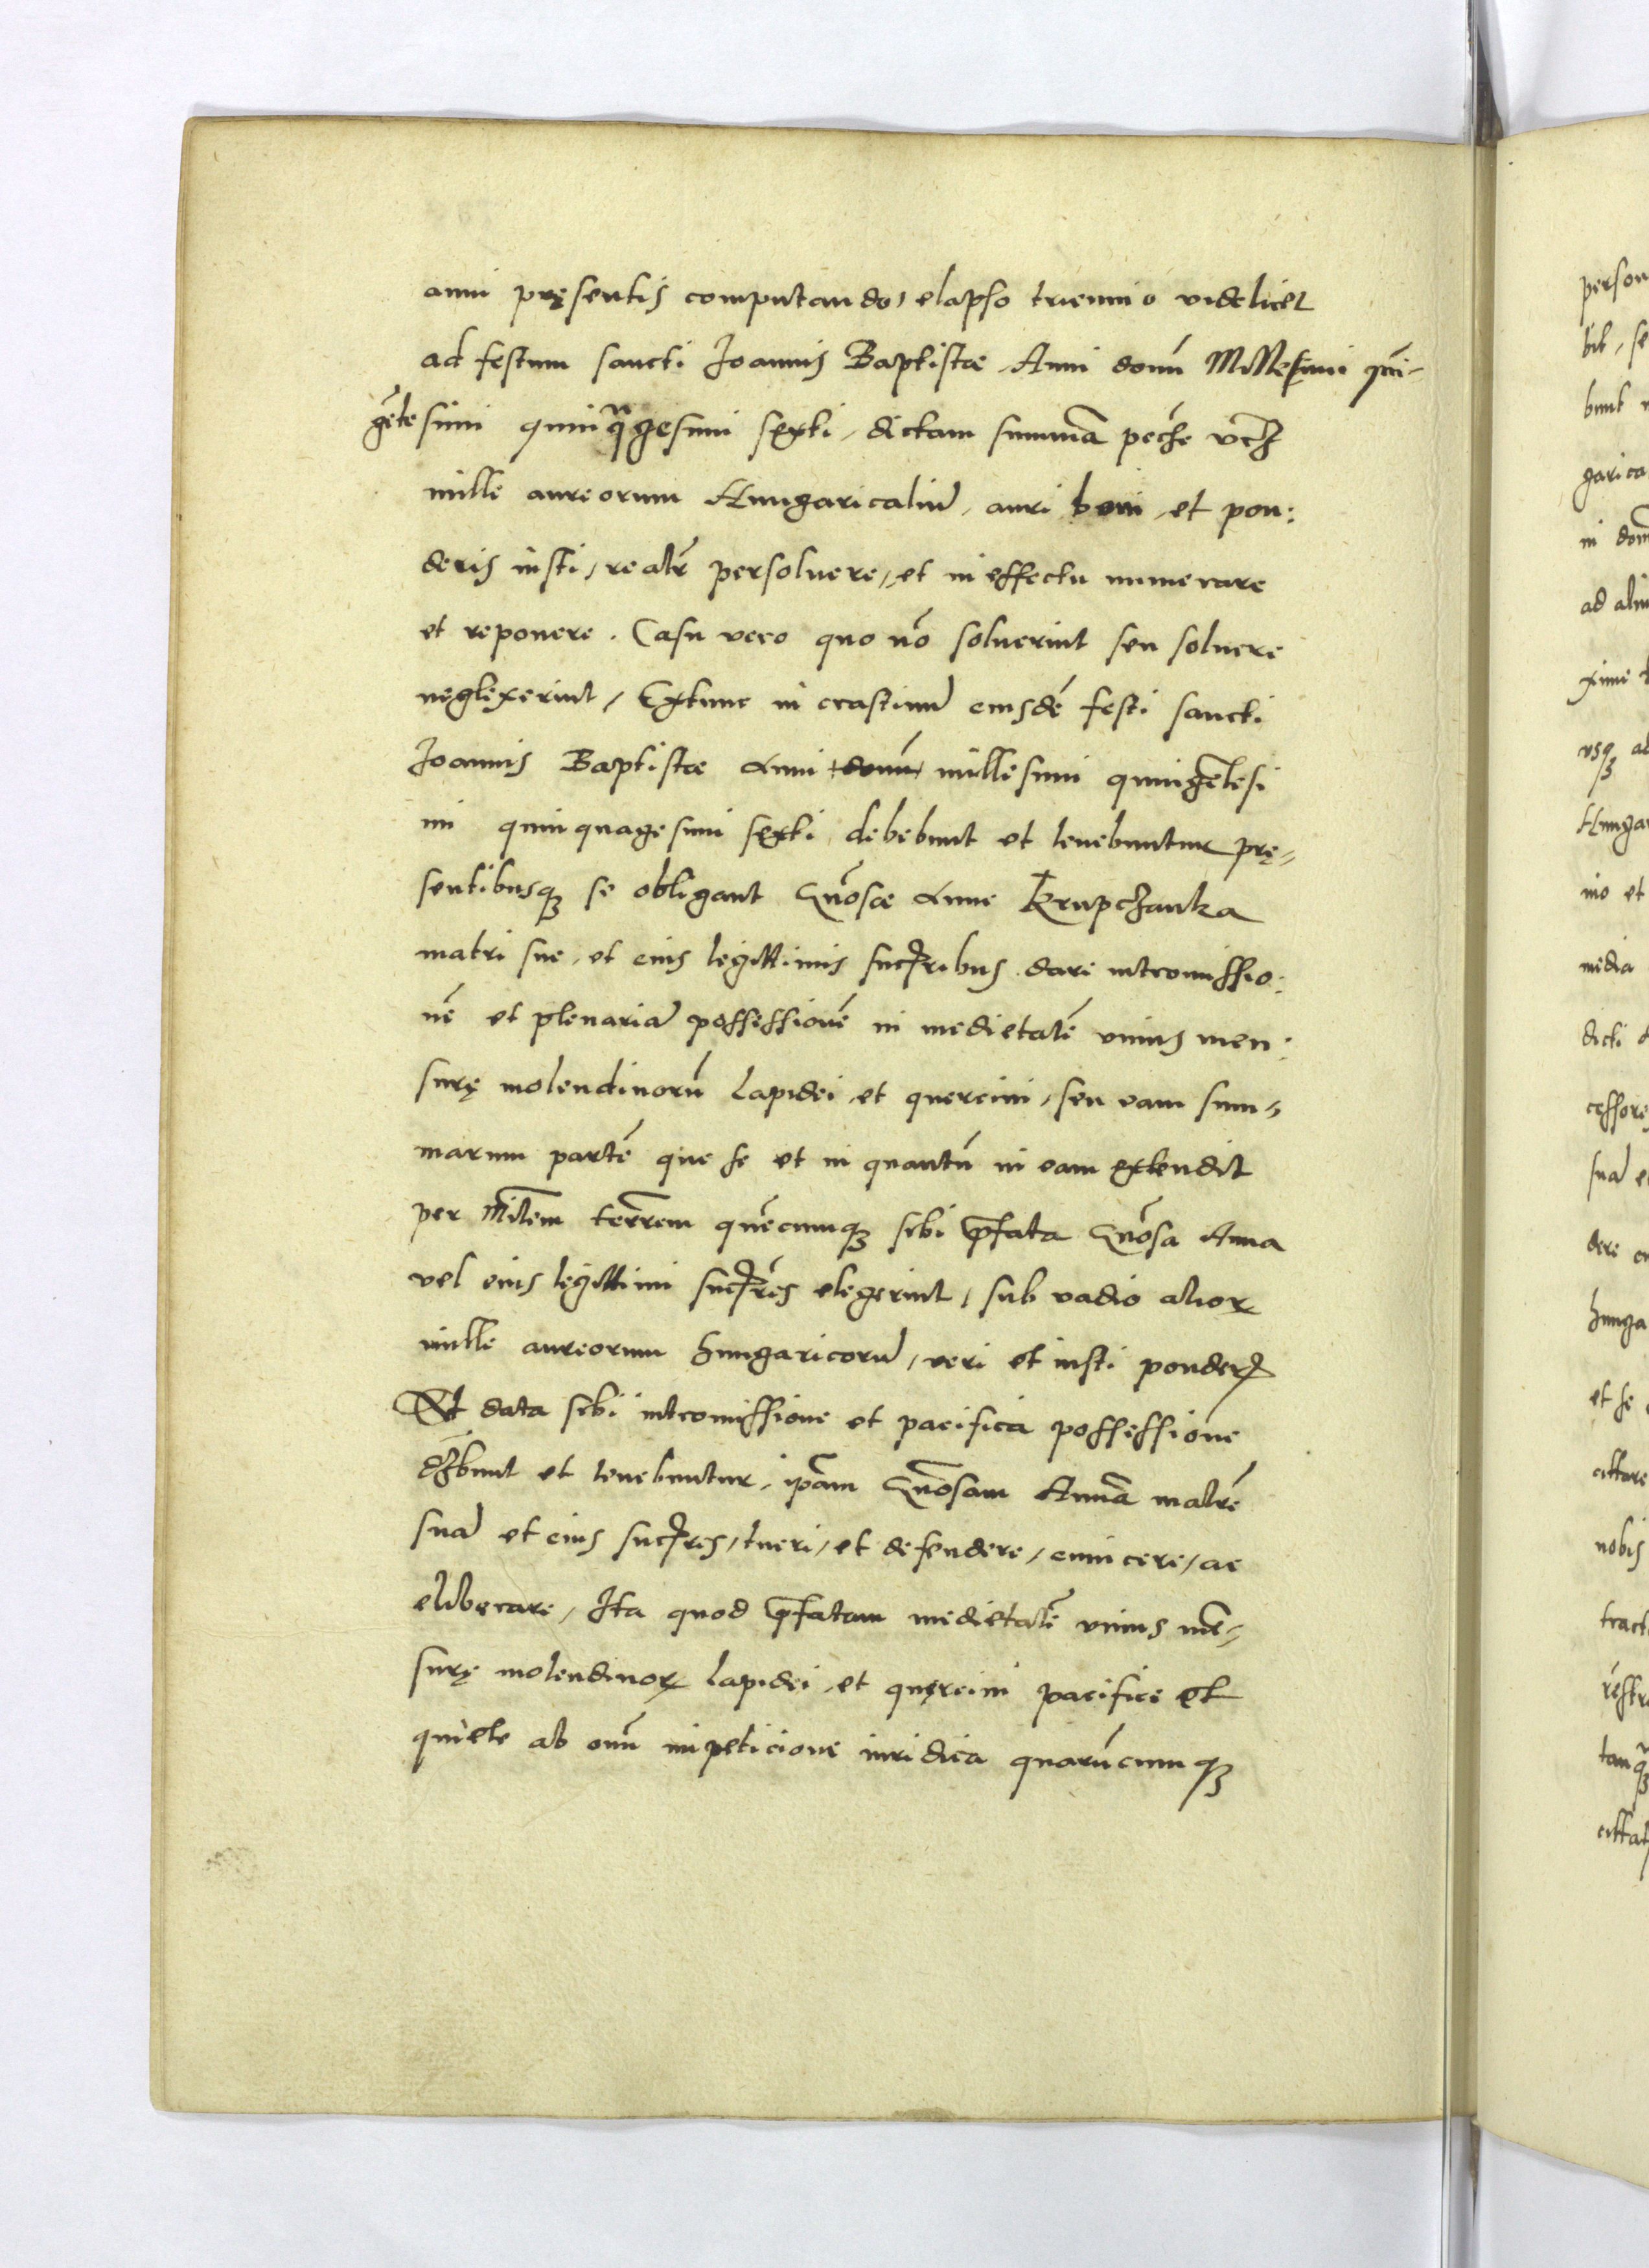 anni pręsentis computando, elapso triennio videlicet
ad festum sancti Joannis Baptistæ Anni domī Millesimi qūi-
gētesimi quinqᵃgesimi sexti, dictam summā pēche vcꝫ
mille aureorum Hungaricaliū, auri boni, et pon:
deris iusti, realr̄ persoluere, et in effectu numerare
et reponere. Casu vero quo nō soluerint seu soluere
neglexerint, Extunc in crastinū eiusdē festi sancti
Joannis Baptistæ Anni domī millesimi quingētesi
mi quinquagesimi sexti debebunt et tenebuntur prę-
sentibusqꝫ se obligant Gn̄osæ Anne Krupczanka
matri sue, et eius legittimis succr̄ibus dare intromissio:
nē et plenariā possessionē in medietatē vnius men:
surę molendinorū Lapidei et quercini, seu eam sum-
marum partē que se et in quantū in eam extendit
per Mīlem terrrem quēcumqꝫ sibi p̄fata Gn̄osa Anna
vel eius legittimi succr̄es elegerint, sub vadio alioꝝ
mille aureorum hungaricorū, veri et iusti ponderꝭ
Et data sibi intromissione et pacifica possessione
dꝫbunt et tenebuntur, ip̄am Gn̄osam Annā matrē
suā et eius succr̄es, tueri, et defendere, euincere, ac
eliberare, Ita quod p̄fatam medietatē vnius mē-
surę molendinoꝝ Lapidei et quęrcini pacifice et
quiete ab om̄i impeticione iuridica quarūcumqꝫ
person
bit, se
bunt
garica
in dom̄
ad aliu
xime
vsqꝫ ad
Hungar
nio et
media
dicti
cessores
suā e
dere
hunga
et se
cittare
nobis
tract
restr
tanqᵃ
cittat